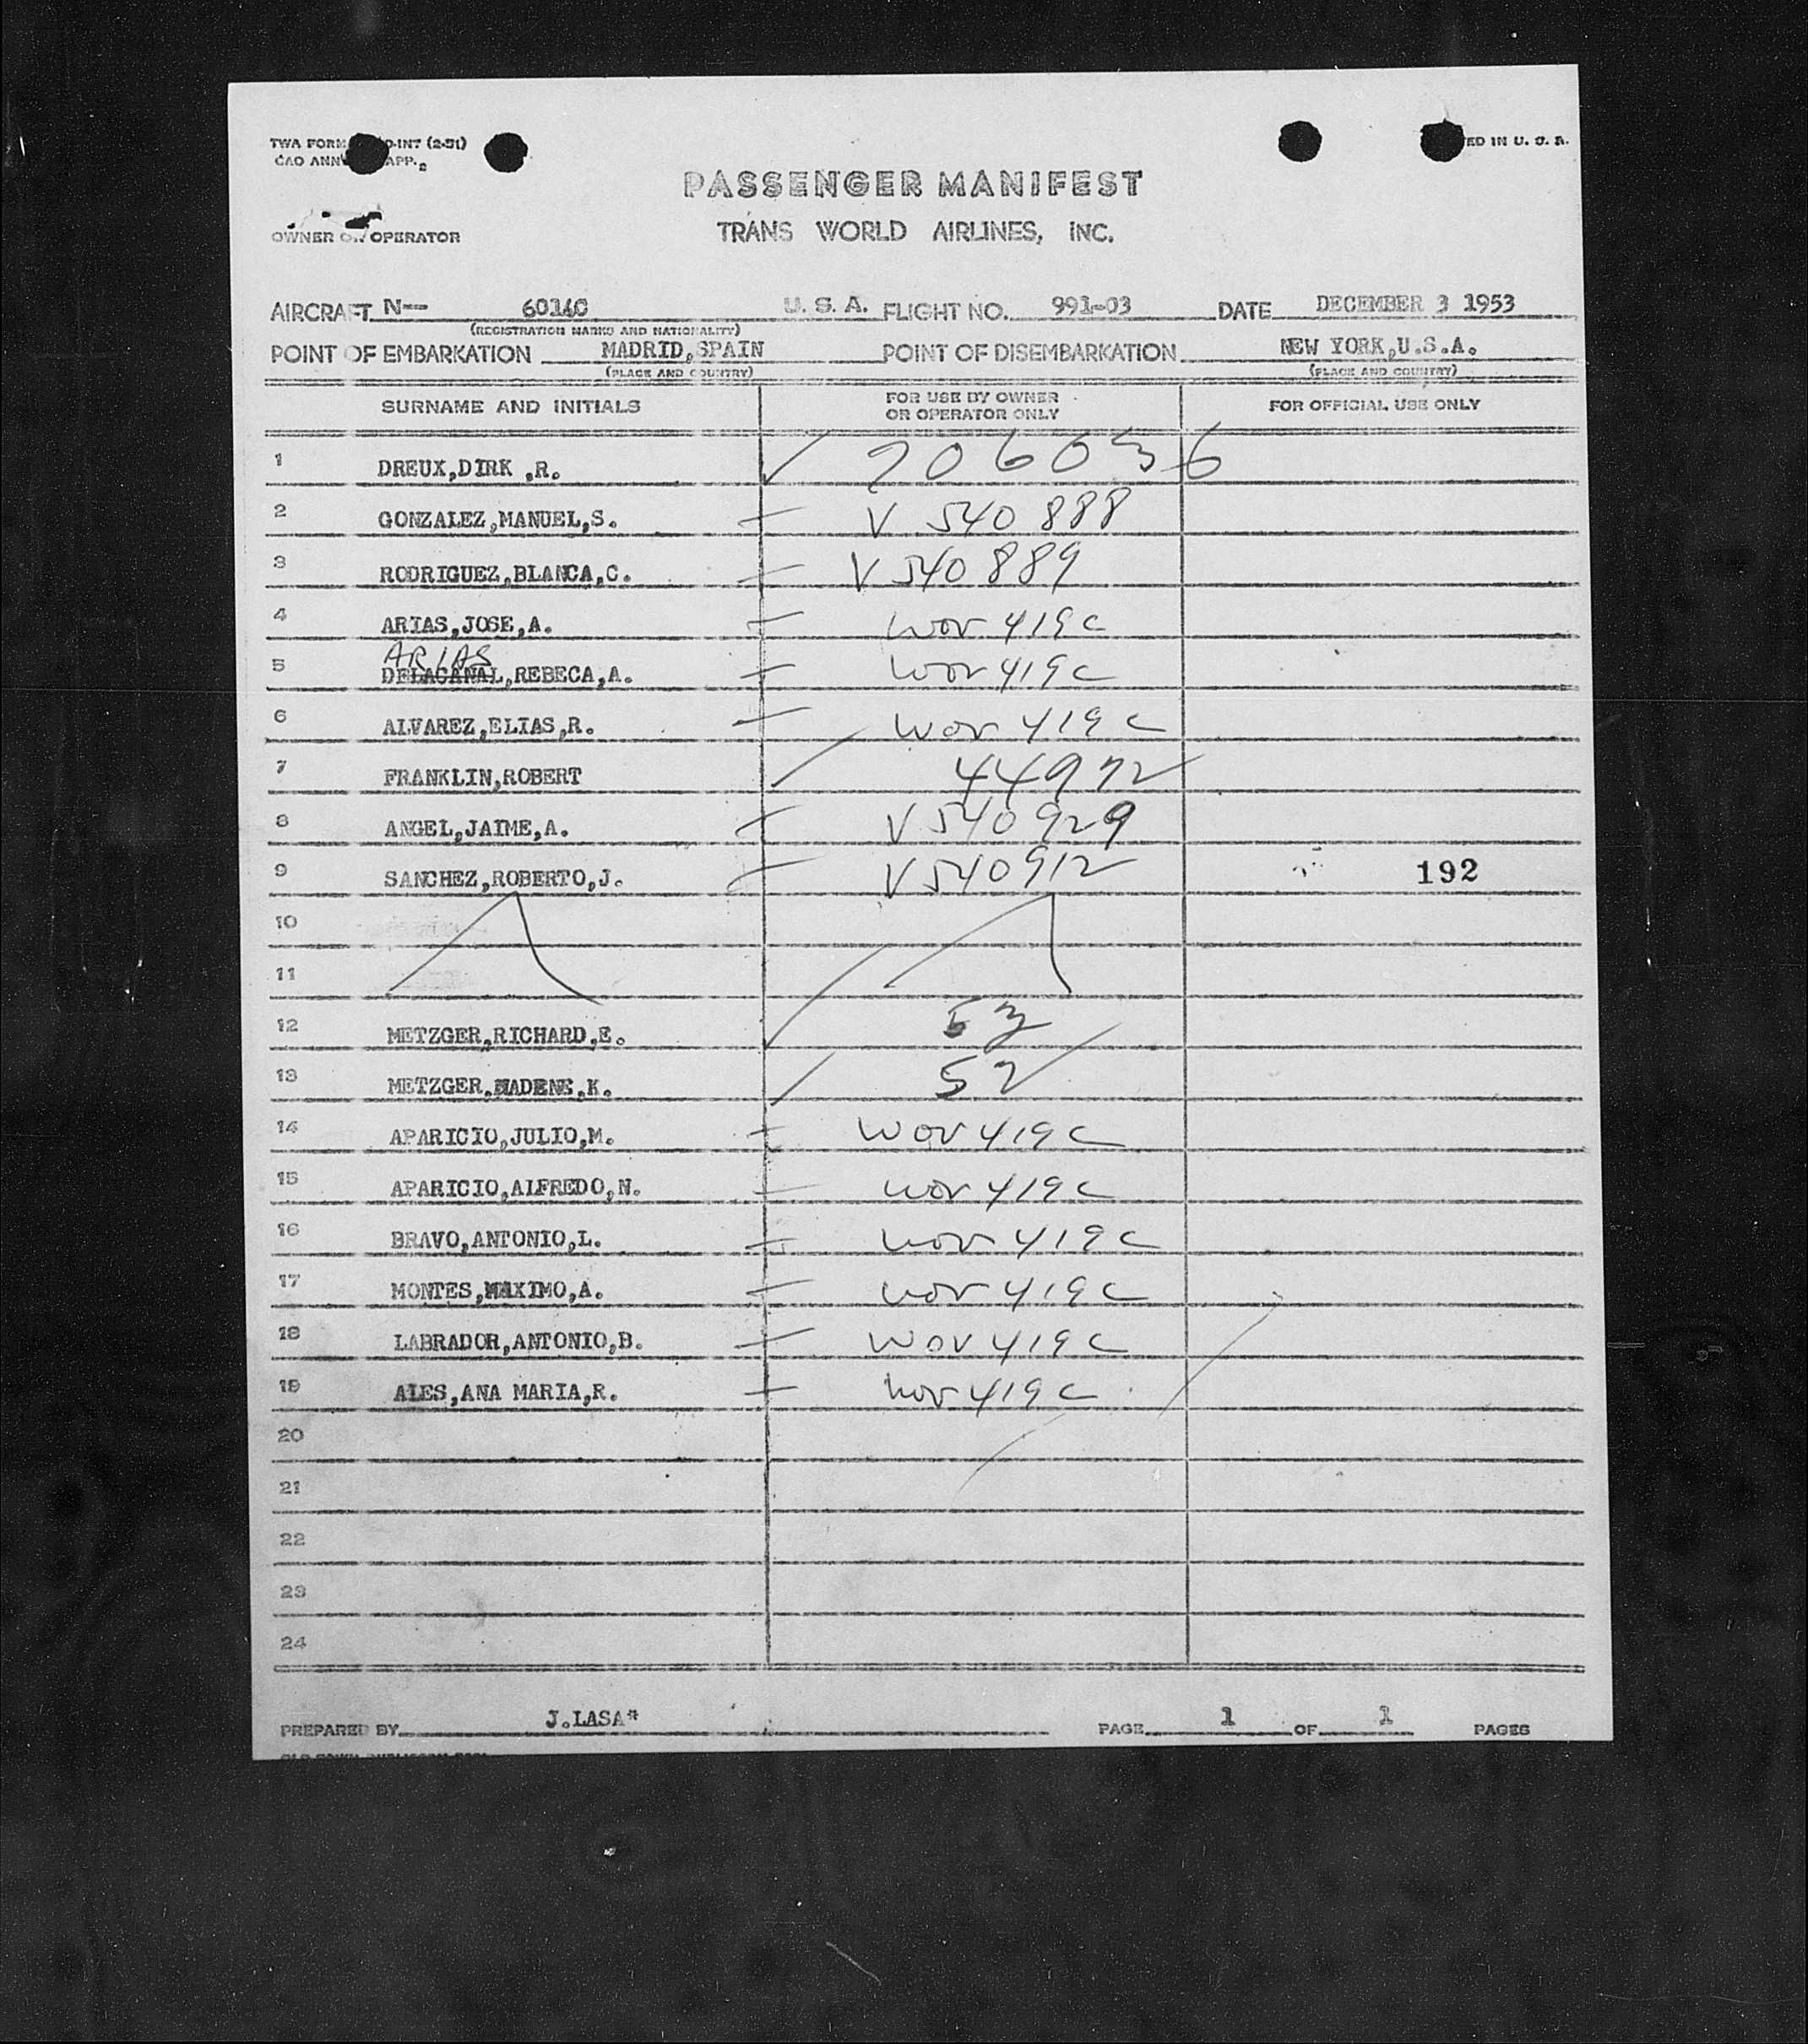 PASSENGER MANIFEST
TRANS WORLD AIRLINES, INC.
OWNER OR OPERATOR
AIRCRAFT N-- 60140 U. S. A. FLIGHT NO. 991-03 DATE DECEMBER 3 1953
(REGISTRATION MARKS AND NATIONALITY)
POINT OF EMBARKATION MADRID,SPAIN POINT OF DISEMBARKATION NEW YORK,U.S.A.
(PLACE AND COUNTRY) (PLACE AND COUNTRY)
SURNAME AND INITIALS FOR USE BY OWNER OR OPERATOR ONLY FOR OFFICIAL USE ONLY
1 DREUX,DIRK ,R. 206036
2 GONZALEZ,MANUEL,S. V 540 888
3 RODRIGUEZ,BLANCA,C. V 540 889
4 ARIAS,JOSE,A. wov 419 c
ARIAS
5 DELACANAL,REBECA,A. wov 419 c
6 ALVAREZ,ELIAS,R. wov 419 c
7 FRANKLIN,ROBERT 44972
8 ANGEL,JAIME,A. V 540929
9 SANCHEZ,ROBERTO,J. V 540912 192
10
11
12 METZGER,RICHARD,E. 53
13 METZGER,NADENE,K. 52
14 APARICIO,JULIO,M. wov 419 c
15 APARICIO,ALFREDO,N. wov 419 c
16 BRAVO,ANTONIO,L. wov 419 c
17 MONTES,MAXIMO,A. wov 419 c
18 LABRADOR,ANTONIO,B. wov 419 c
19 ALES,ANA MARIA,R. wov 419 c
20
21
22
23
24
PREPARED BY J.LASA* PAGE 1 OF 1 PAGES